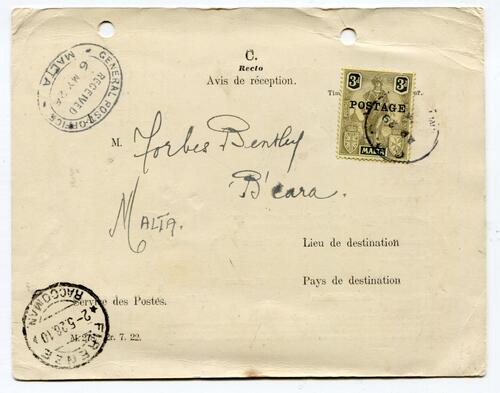 C.
Recto
Avis de réception.
GENERAL POST OFFICE
RECEIVED
6 MY 26
MALTA
3d 3d
POSTAGE
MALTA
M. Forbes Bentley
B'cara.
MALTA.
Lieu de destination
Pays de destination
Service des Postes.
FIRENZE
2-5.26.10
RACCOMAN
7. 22.